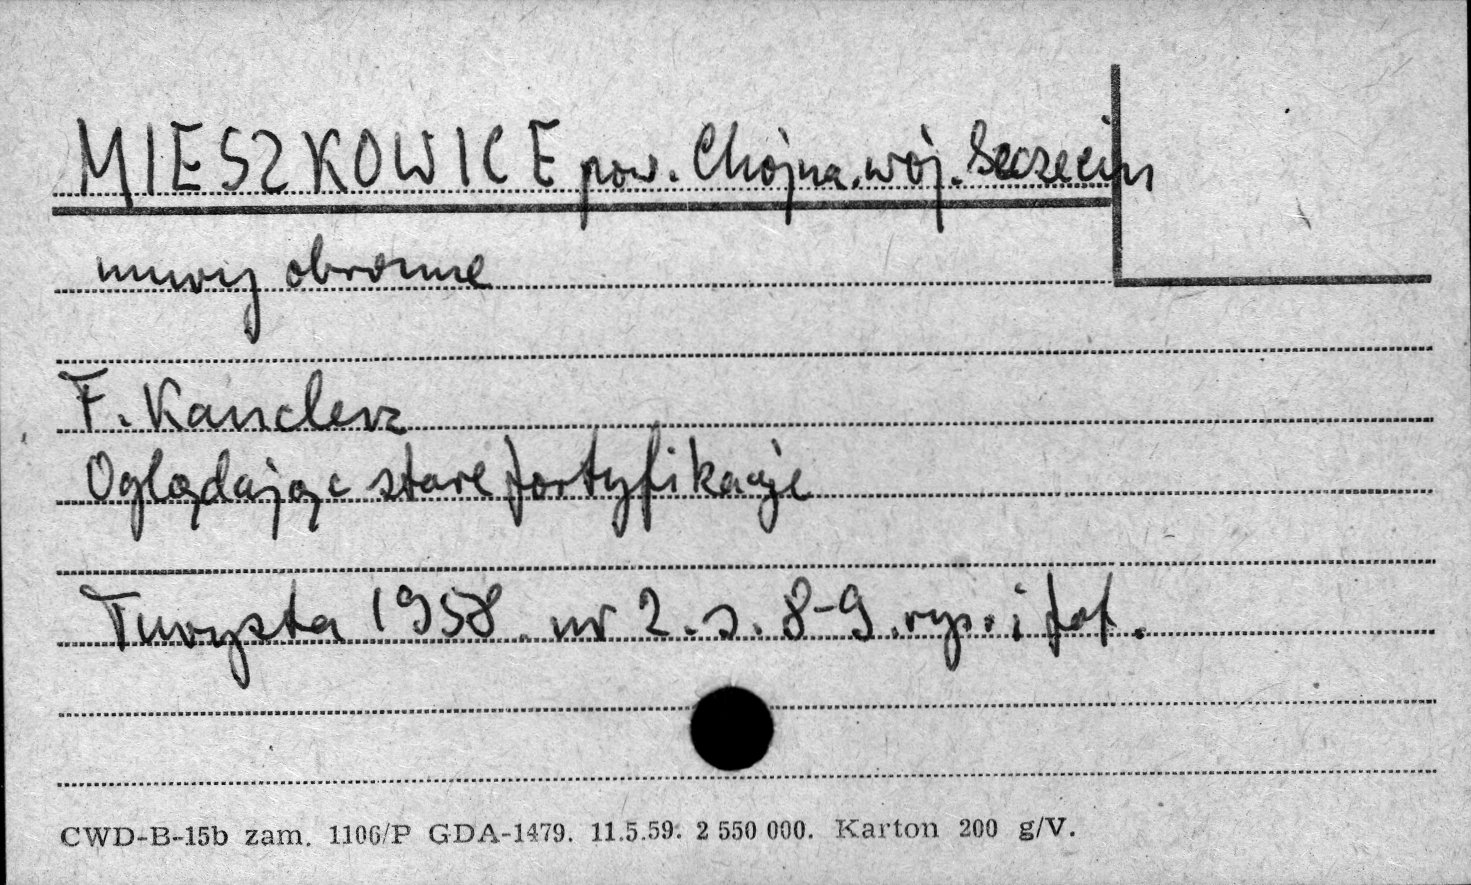 MIESZKOWICE pow. Chojna. woj. Szczecin
mury obronne
F. Kanclerz
Oglądając stare fortyfikacje
Turysta 1958. nr 2. s. 8-9. rys. i fot.
CWD-B-15b zam. 1106/P GDA-1479. 11.5.59. 2 550 000. Karton 200 g/V.